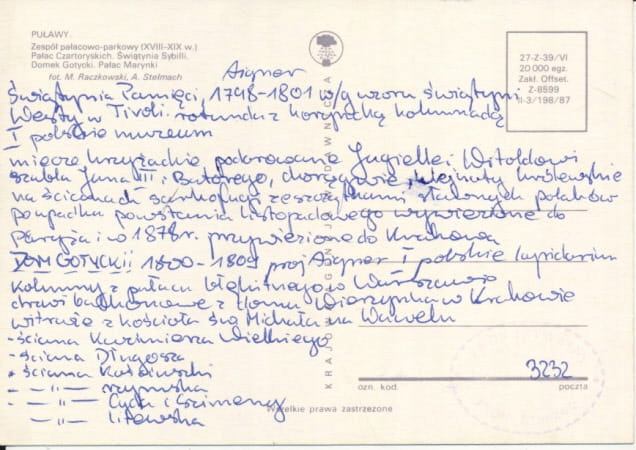 PUŁAWY
Zespół pałacowo-parkowy (XVIII-XIX w.)
Pałac Czartoryskich. Świątynia Sybilli.
Domek Gotycki. Pałac Marynki
fot. M. Raczkowski, A. Stelmach
27-Z-39/VI
20 000 egz.
Zakł. Offset.
Z-8599
II-3/198/87
Aigner
Świątynia Pamięci, 1798-1801 w/g wzoru świątyni
Westy w Tivoli. rotunda z koryncką kolumnadą
I polskie muzeum
miecze krzyżackie podarowane Jagielle i Witoldowi
szabla Jana III i Batorego, chorągwie, klejnoty królewskie
na ścianach sarkofagi ze szczątkami sławnych polaków
po upadku powstania listopadowego wywiezione do
Paryża i w 1878r. przywiezione do Krakowa
DOM GOTYCKI 1800-1809 proj Aigner I polskie lapidarium
kolumny z pałacu błękitnego w Warszawie
drzwi balkonowe z domu Wierzynka w Krakowie
witraże z kościoła św Michała na Wawelu
- ściana Kazimierza Wielkiego
- ściana Długosza
- ściana Kościuszki
- —"— rzymska
- —"— Cyda i Ksimeny
- —"— litewska
KRAJOWA AGENCJA WYDAWNICZA
3232
ozn. kod.
poczta
Wszelkie prawa zastrzeżone